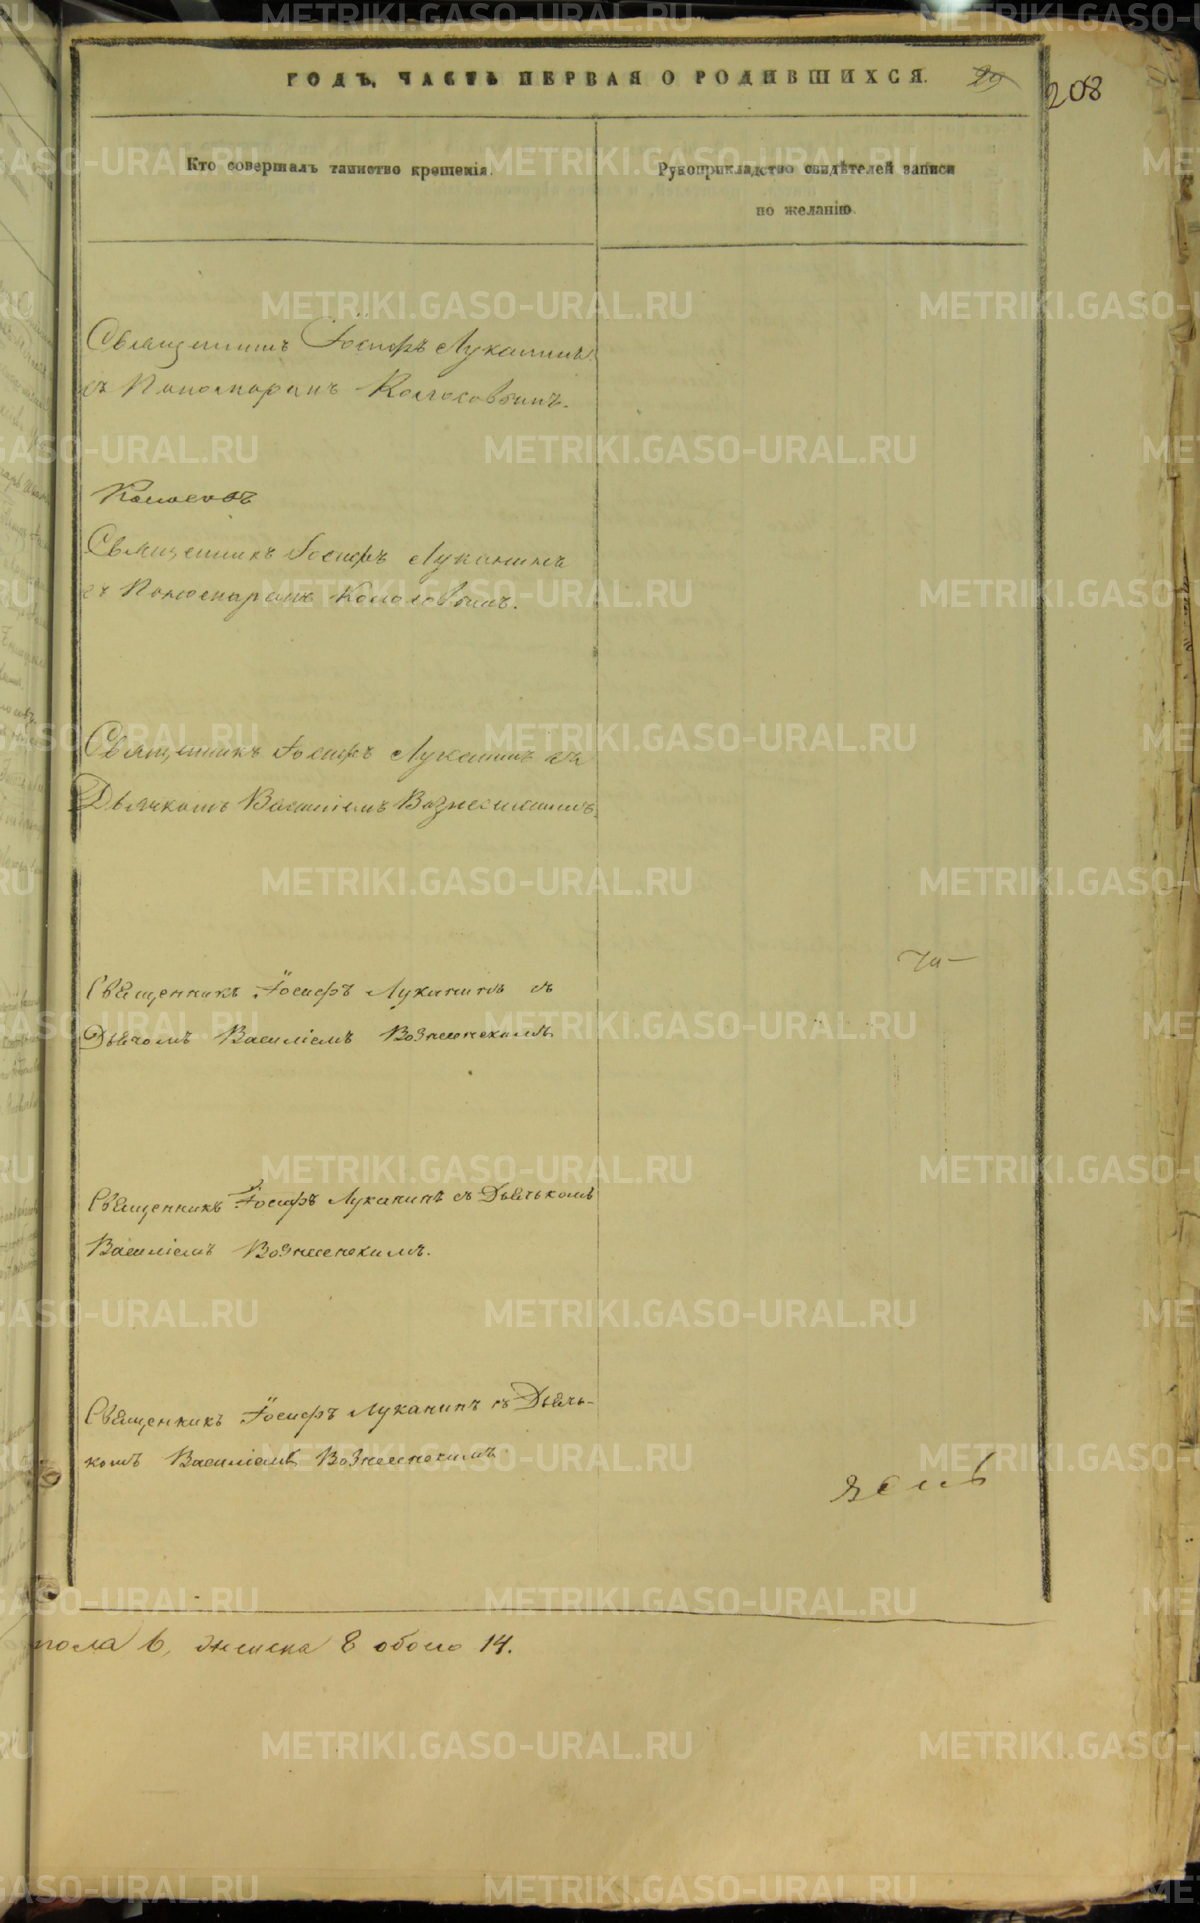 ГОДЪ, ЧАСТЬ ПЕРВАЯ О РОДИВШИХСЯ.
29
208
Кто совершалъ таинство крещенія.
Рукоприкладство свидѣтелей записи
по желанію.
Священникъ Іосифъ Луканинъ
съ Пономаремъ
Священникъ Іосифъ Луканинъ
съ Пономаремъ
Священникъ Іосифъ Луканинъ съ
Дьячкомъ Василіемъ Вознесенскимъ.
Священникъ Іосифъ Луканинъ съ
Дьячкомъ Василіемъ Вознесенскимъ
Священникъ Іосифъ Луканинъ съ Дьячькомъ
Василіемъ Вознесенскимъ.
Священникъ Іосифъ Луканинъ съ Дьячь-
комъ Василіемъ Вознесенскимъ
пола 6, женска 8 обоего 14.
METRIKI.GASO-URAL.RU